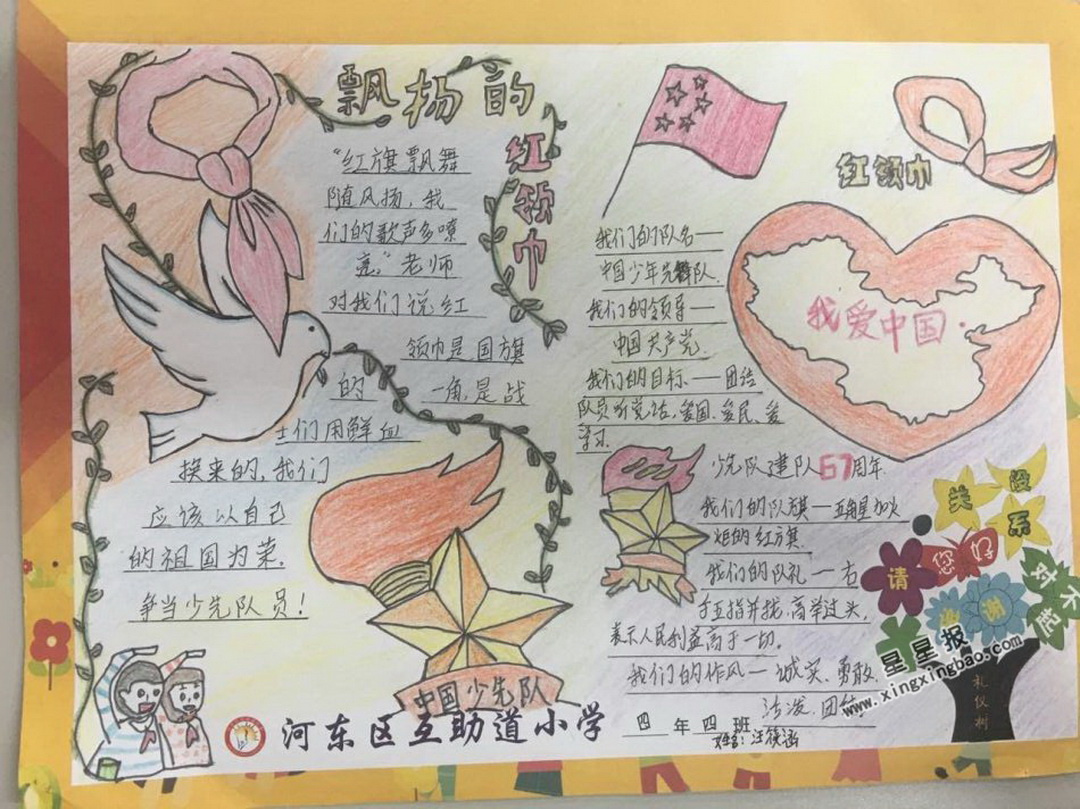 飘扬的
红领巾
“红旗飘舞
随风扬，我
们的歌声多嘹
亮”老师
对我们说红
领巾是国旗
的一角，是战
士们用鲜血
换来的，我们
应该以自己
的祖国为荣.
争当少先队员！
中国少先队
河东区互助道小学
红领巾
我们的队名——
中国少年先锋队.
我们的领导——
中国共产党
我们的目标——团结
队员听党话，爱国、爱民、爱
学习.
我爱中国.
少先队建队67周年
我们的队旗—五角星加火
炬的红旗.
我们的队礼—右
手五指并拢，高举过头，
表示人民利益高于一切.
我们的作风—诚实、勇敢、
活泼、团结
四年四班
姓名：汪筱涵
没关系
您好
请
对不起
谢谢
礼仪树
星星报
www.xingxingbao.com